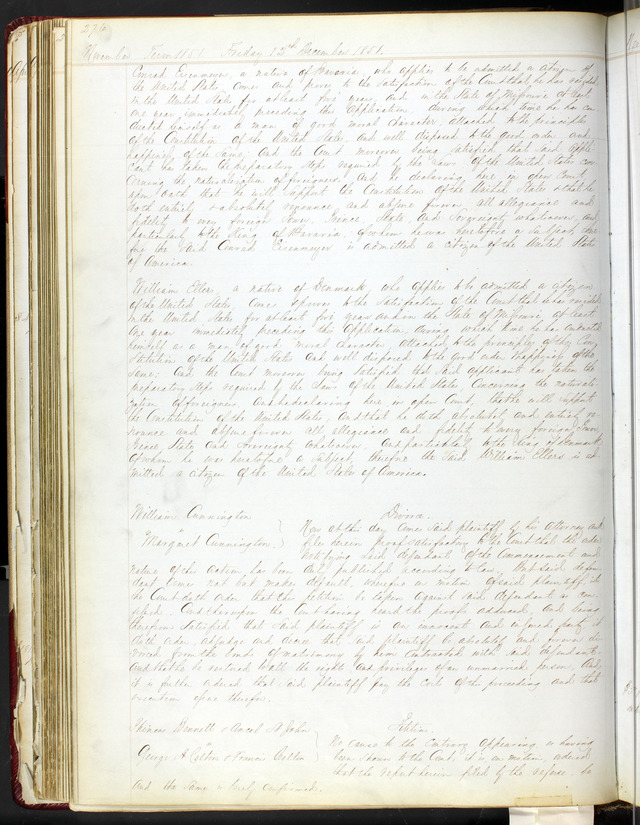 276
November Term 1851 Friday 12th December 1851.
Conrad Eisenmeyer, a native of Bavaria, who applies to be admitted a citizen of
the United States, comes and proves to the satisfaction of the Court that he has resided
in the United States for at least five years, and in the State of Missouri at least
one year, immediately preceding this application, during which time he has con
ducted himself as a man of good moral character, attached to the principles
of the Constitution of the United States, and well disposed to the good order and
happiness of the same; And the Court moreover being satisfied that said appli
cant has taken the preparatory steps required by the laws of the United States con
cerning the naturalization of foreigners, And he declaring here in open Court
upon oath, that he will support the Constitution of the United States & that he
doth entirely & absolutely renounce, and abjure forever all allegiance and
fidelity to every foreign Power, Prince State and Sovereignty whatsoever, and
particularly to the King of Bavaria, of whom he was heretofore a subject, there
fore the said Conrad Eisenmeyer is admitted a citizen of the United States
of America.
William Ellers, a native of Denmark, who applies to be admitted a citizen
of the United States, comes & proves to the satisfaction of the Court that he has resided
in the United States for at least five years and in the State of Missouri at least
one year immediately preceding this application, during which time he has conducted
himself as a man of good moral character attached to the principles of the Con
stitution of the United States and well disposed to the good order & happiness of the
same; And the Court moreover being satisfied that said applicant has taken the
preparatory steps required by the Laws of the United States, Concerning the naturali
zation of foreigners, And he declaring here in open Court, that he will support
the Constitution of the United States, And that he doth absolutely and entirely re
nounce and abjure forever all allegiance and fidelity to every foreign Power
Prince State and Sovereignty whatsoever And particularly to the King of Denmark
of whom he was heretofore a subject, therefore the said William Ellers is ad
mitted a citizen of the United States of America.
William Cunnington
Margaret Cunnington
Divorce.
Now at this day comes said plaintiff by his Attorney and
files herein proof satisfactory to the Court that the order
notifying said defendant of the commencement and
nature of this action has been duly published according to law, And said defen
dant comes not but makes default, wherefore on motion of said plaintiff, it
the Court doth order that the petition be taken against said defendant as con
fessed. And thereupon the Court having heard the proofs adduced, and being
therefrom satisfied that said plaintiff is an innocent and injured party, it
doth order, adjudge and decree that said plaintiff be absolutely and forever di
vorced from the bonds of matrimony by him contracted with said defendant,
And that he be restored to all the rights and privileges of an unmarried person. And
it is further ordered that said plaintiff pay the costs of this proceeding and that
execution issue therefor.
Bennett & Ancel St John
George A Colton & Francis Colton
Petition.
No cause to the contrary appearing or having
been shown to the Court, it is, on motion, ordered
that the report herein filed by the referee, be
and the same is hereby confirmed.